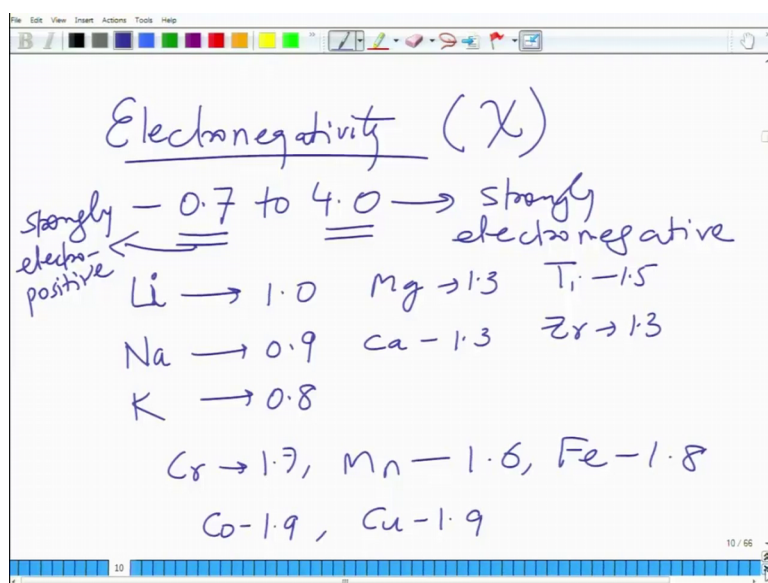 File Edit View Insert Actions Tools Help
B I
Electronegativity (χ)
strongly electro-positive
– 0.7 to 4.0 → strongly electronegative
Li → 1.0 Mg → 1.3 Ti – 1.5
Na → 0.9 Ca – 1.3 Zr → 1.3
K → 0.8
Cr → 1.7, Mn – 1.6, Fe – 1.8
Co – 1.9, Cu – 1.9
10 / 66
10